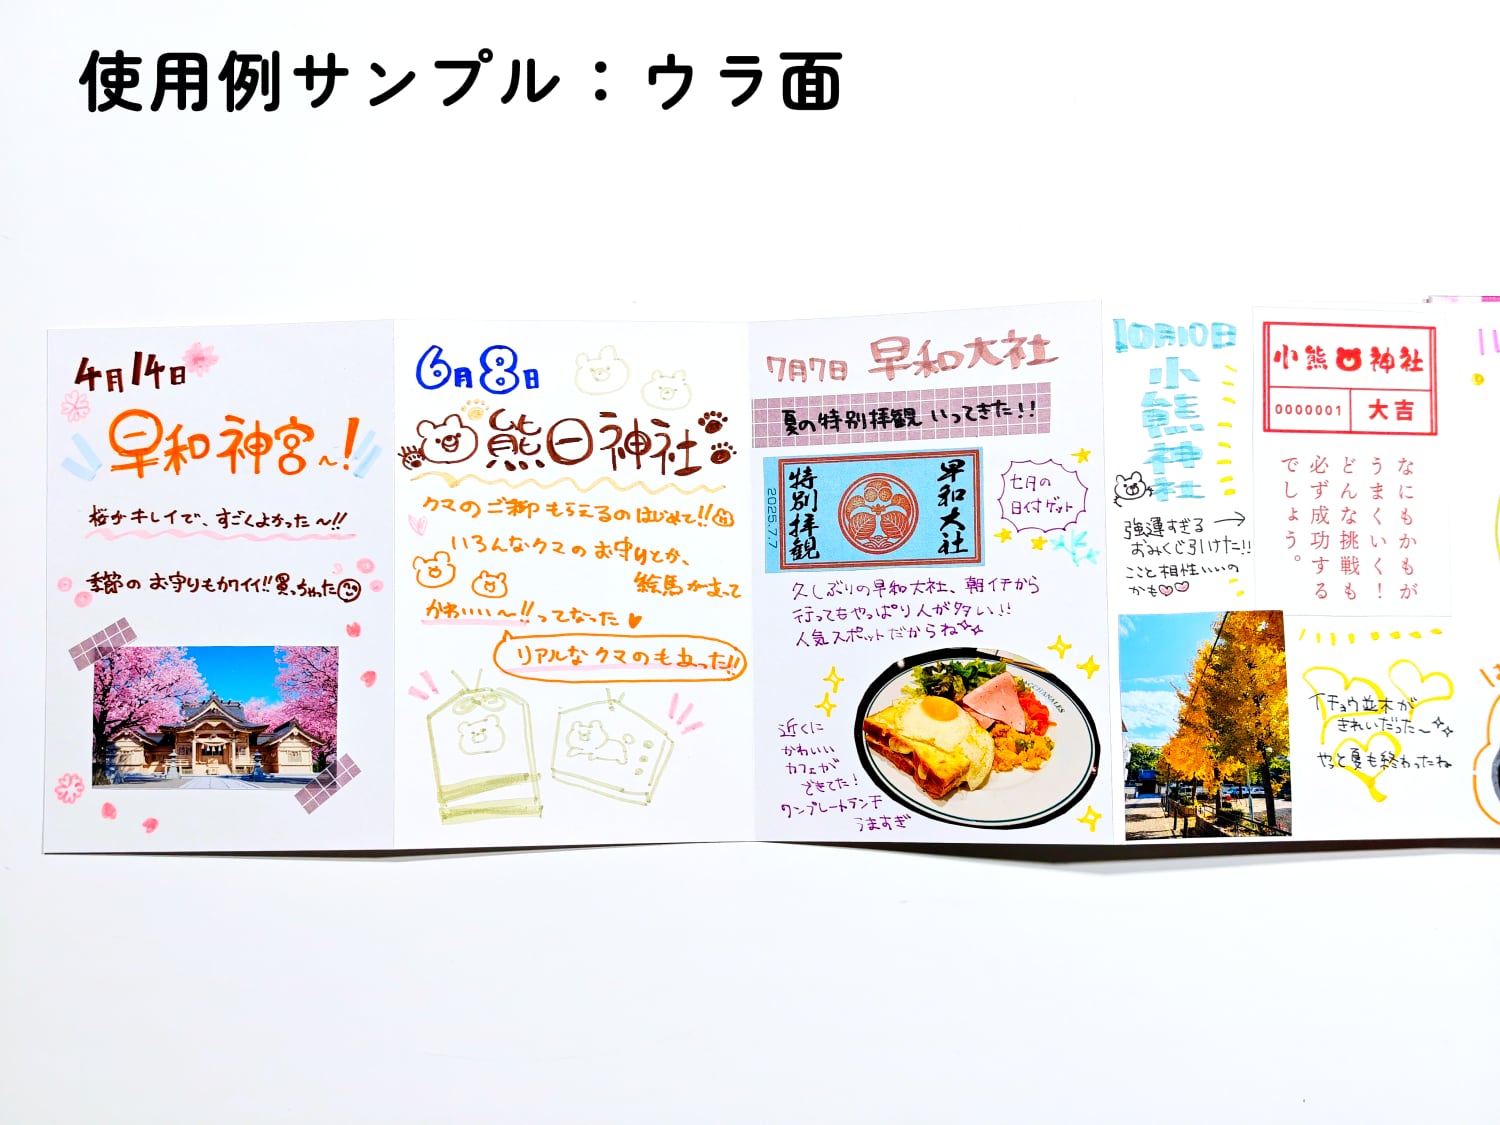 使用例サンプル：ウラ面
4月14日
早和神宮〜！
桜がキレイで、すごくよかった〜!!
季節の お守りもカワイイ!! 買っちゃった
6月8日
熊日神社
クマの ご朱印 もらえるの はじめて!!
いろんなクマの お守りとか、
絵馬があって
かわいい〜!! ってなった
リアルなクマのもあった!!
7月7日 早和大社
夏の特別拝観 いってきた!!
早和大社
特別拝観
2025.7.7
七月の
日付ゲット
久しぶりの早和大社、朝イチから
行ってもやっぱり人が多い!!
人気スポットだからね
近くに
かわいい
カフェが
できてた!
ワンプレートランチ
うますぎ
10月10日
小熊神社
強運すぎる →
おみくじ引けた!!
ここと相性いいの
かも
小熊 神社
0000001
大吉
なにもかもが
うまくいく！
どんな挑戦も
必ず成功する
でしょう。
イチョウ並木が
きれいだった〜
やっと夏も終わったね